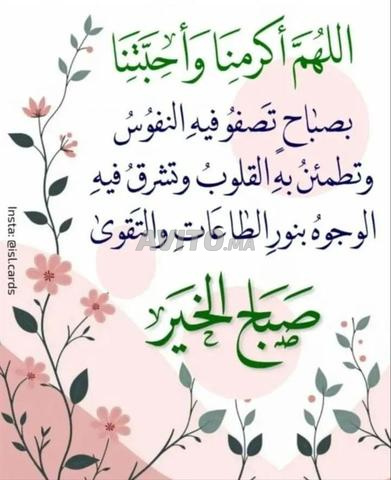 اللهُمَّ أكرمنَا وَأحِبَّتنَا
بصبَاح تَصفُو فيهِ النفوُسُ
وتطمئنُ بهِ القلوبُ وتشرقُ فيهِ
الوجوهُ بنورِ الطاعَاتِ والتقوىٰ
AVITO.MA
صَبَاح الخَيَر
Insta: @isl.cards